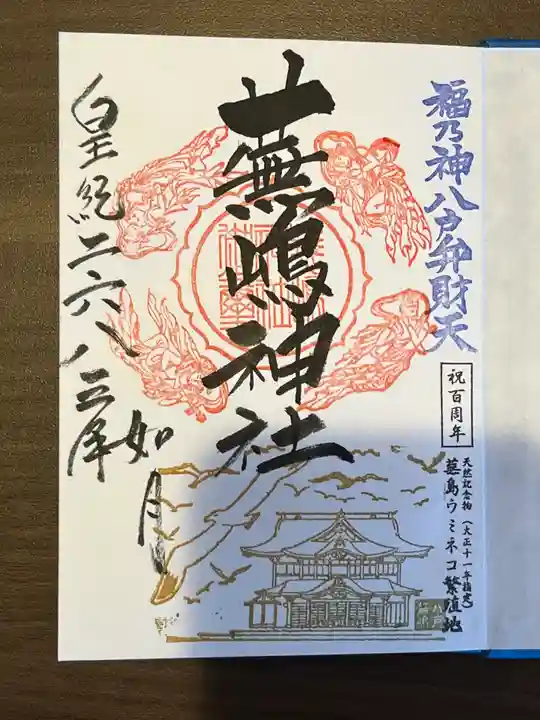 福乃神八戸弁財天
祝百周年
天然記念物（大正十一年指定）
蕪島ウミネコ繁殖地
蕪嶋神社
皇紀二六八三年
如月